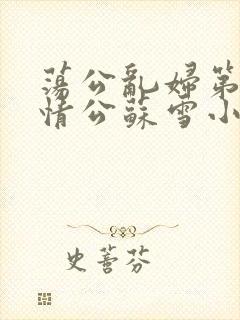 蕩公亂婦第
情公蘇雪小
史蕾芬